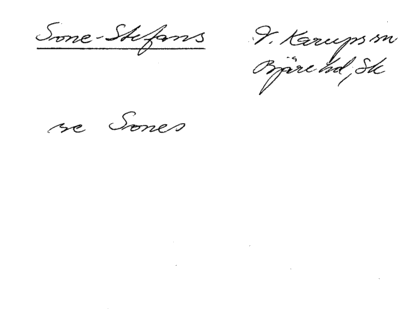 Sone-Stefans
V. Karups sn
Bjäre hd, Sk
se Sones